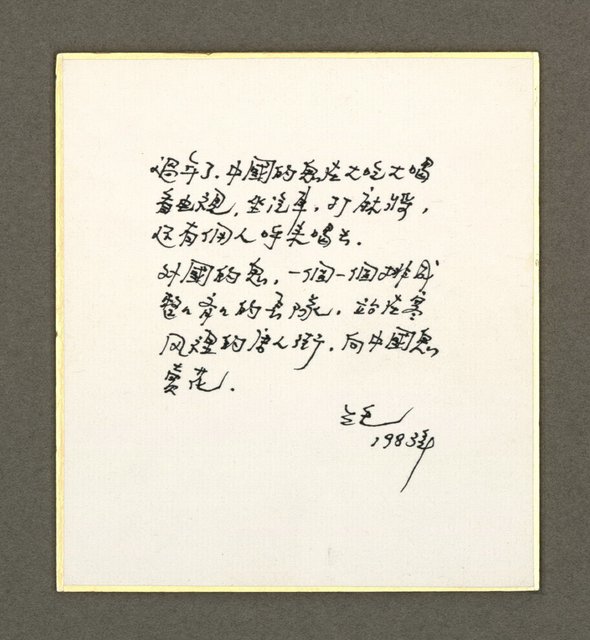 過年了，中國的鬼在大吃大喝
看电視，坐汽車，打麻將，
还有個人呼来喝去．
外國的鬼，一個一個排成
整々齊々的長隊，站在寒
风裡的唐人街，向中國鬼
賣花．
1983年